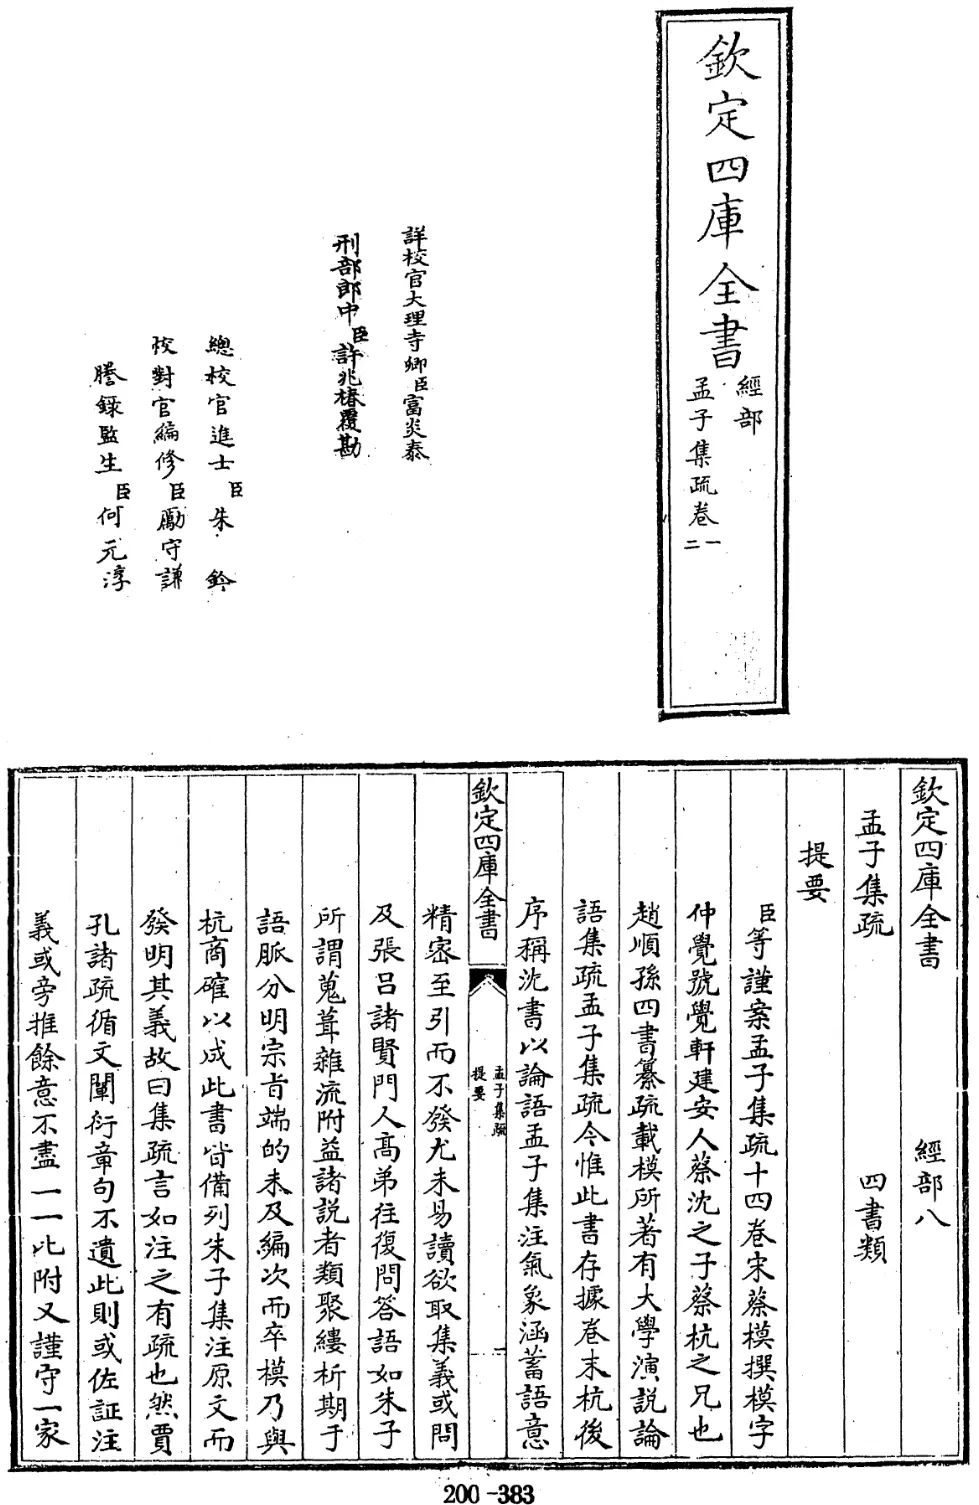 欽定四庫全書
經部
孟子集疏卷一
二
詳校官大理寺卿臣富炎泰
刑部郎中臣許兆椿覆勘
總校官進士臣朱鈐
校對官編修臣勵守謙
謄錄監生臣何元淳
欽定四庫全書 經部八
孟子集疏 四書類
提要
臣等謹案孟子集疏十四卷宋蔡模撰模字
仲覺號覺軒建安人蔡沈之子蔡杭之兄也
趙順孫四書纂疏載模所著有大學演説論
語集疏孟子集疏今惟此書存據卷末杭後
序稱沈書以論語孟子集注氣象涵蓄語意
欽定四庫全書
孟子集疏
提要
一
精密至引而不發尤未易讀欲取集義或問
及張吕諸賢門人髙弟往復問答語如朱子
所謂蒐葺雜流附益諸説者類聚縷析期于
語脈分明宗㫖端的未及編次而卒模乃與
杭商確以成此書皆備列朱子集注原文而
發明其義故曰集疏言如注之有疏也然賈
孔諸疏循文闡衍章句不遺此則或佐証注
義或旁推餘意不盡一一比附又謹守一家
200-383